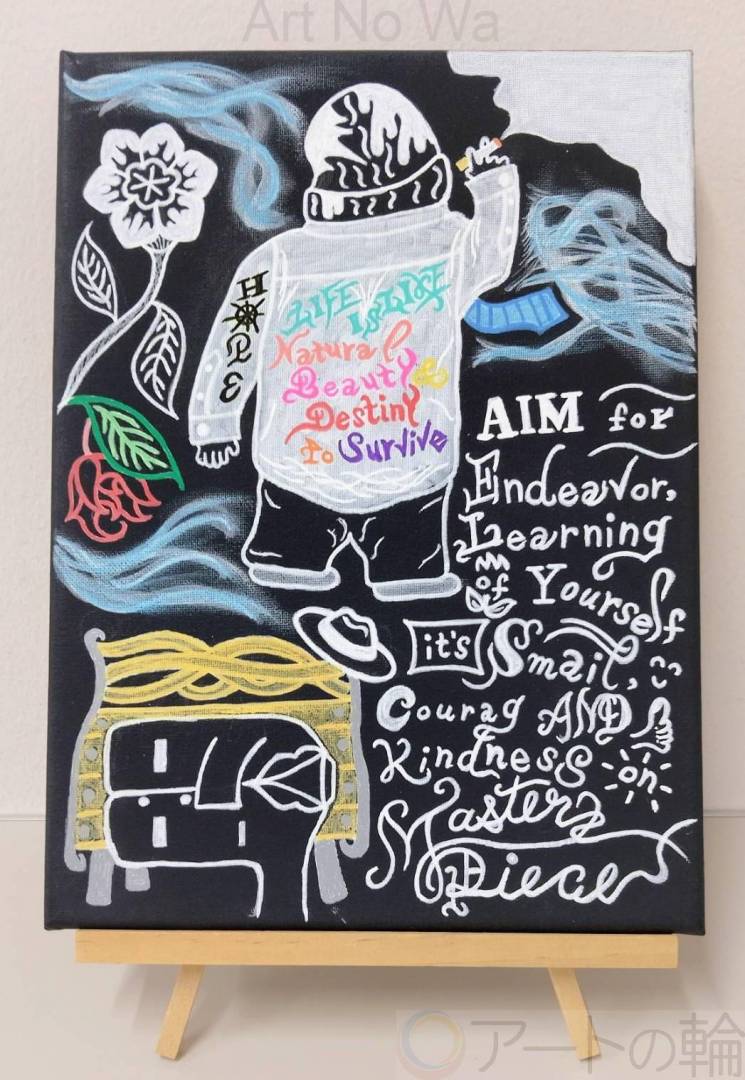 Art No Wa
HOPE
LIFE
is LIKE
Natural
Beauty &
Destiny
to Survive
AIM for
Endeavor,
Learning
of Yourself
it's Smail,
Courag AND
Kindness on
Masterz
Piece
アートの輪